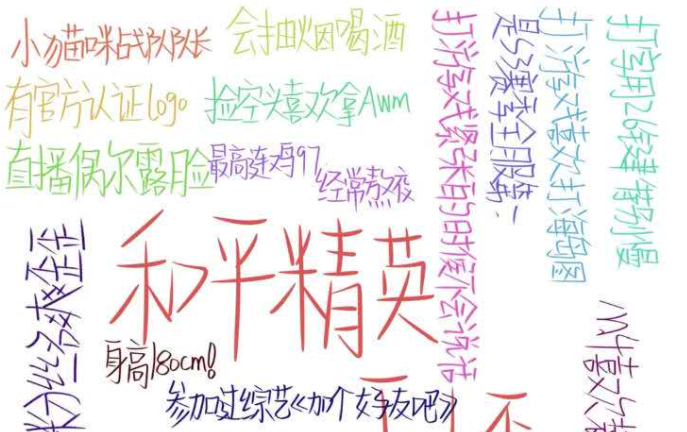 小猫咪战队队长
会抽烟喝酒
有官方认证logo
捡空头喜欢拿AWM
直播偶尔露脸
最高连鸡97
经常熬夜
打游戏紧张的时候不会说话
是S9赛季全服第一
打游戏喜欢打海岛图
打字用26键 特别慢
粉丝名叫歪歪
和平精英
身高180cm!
参加过综艺《加个好友吧》
不
喜欢